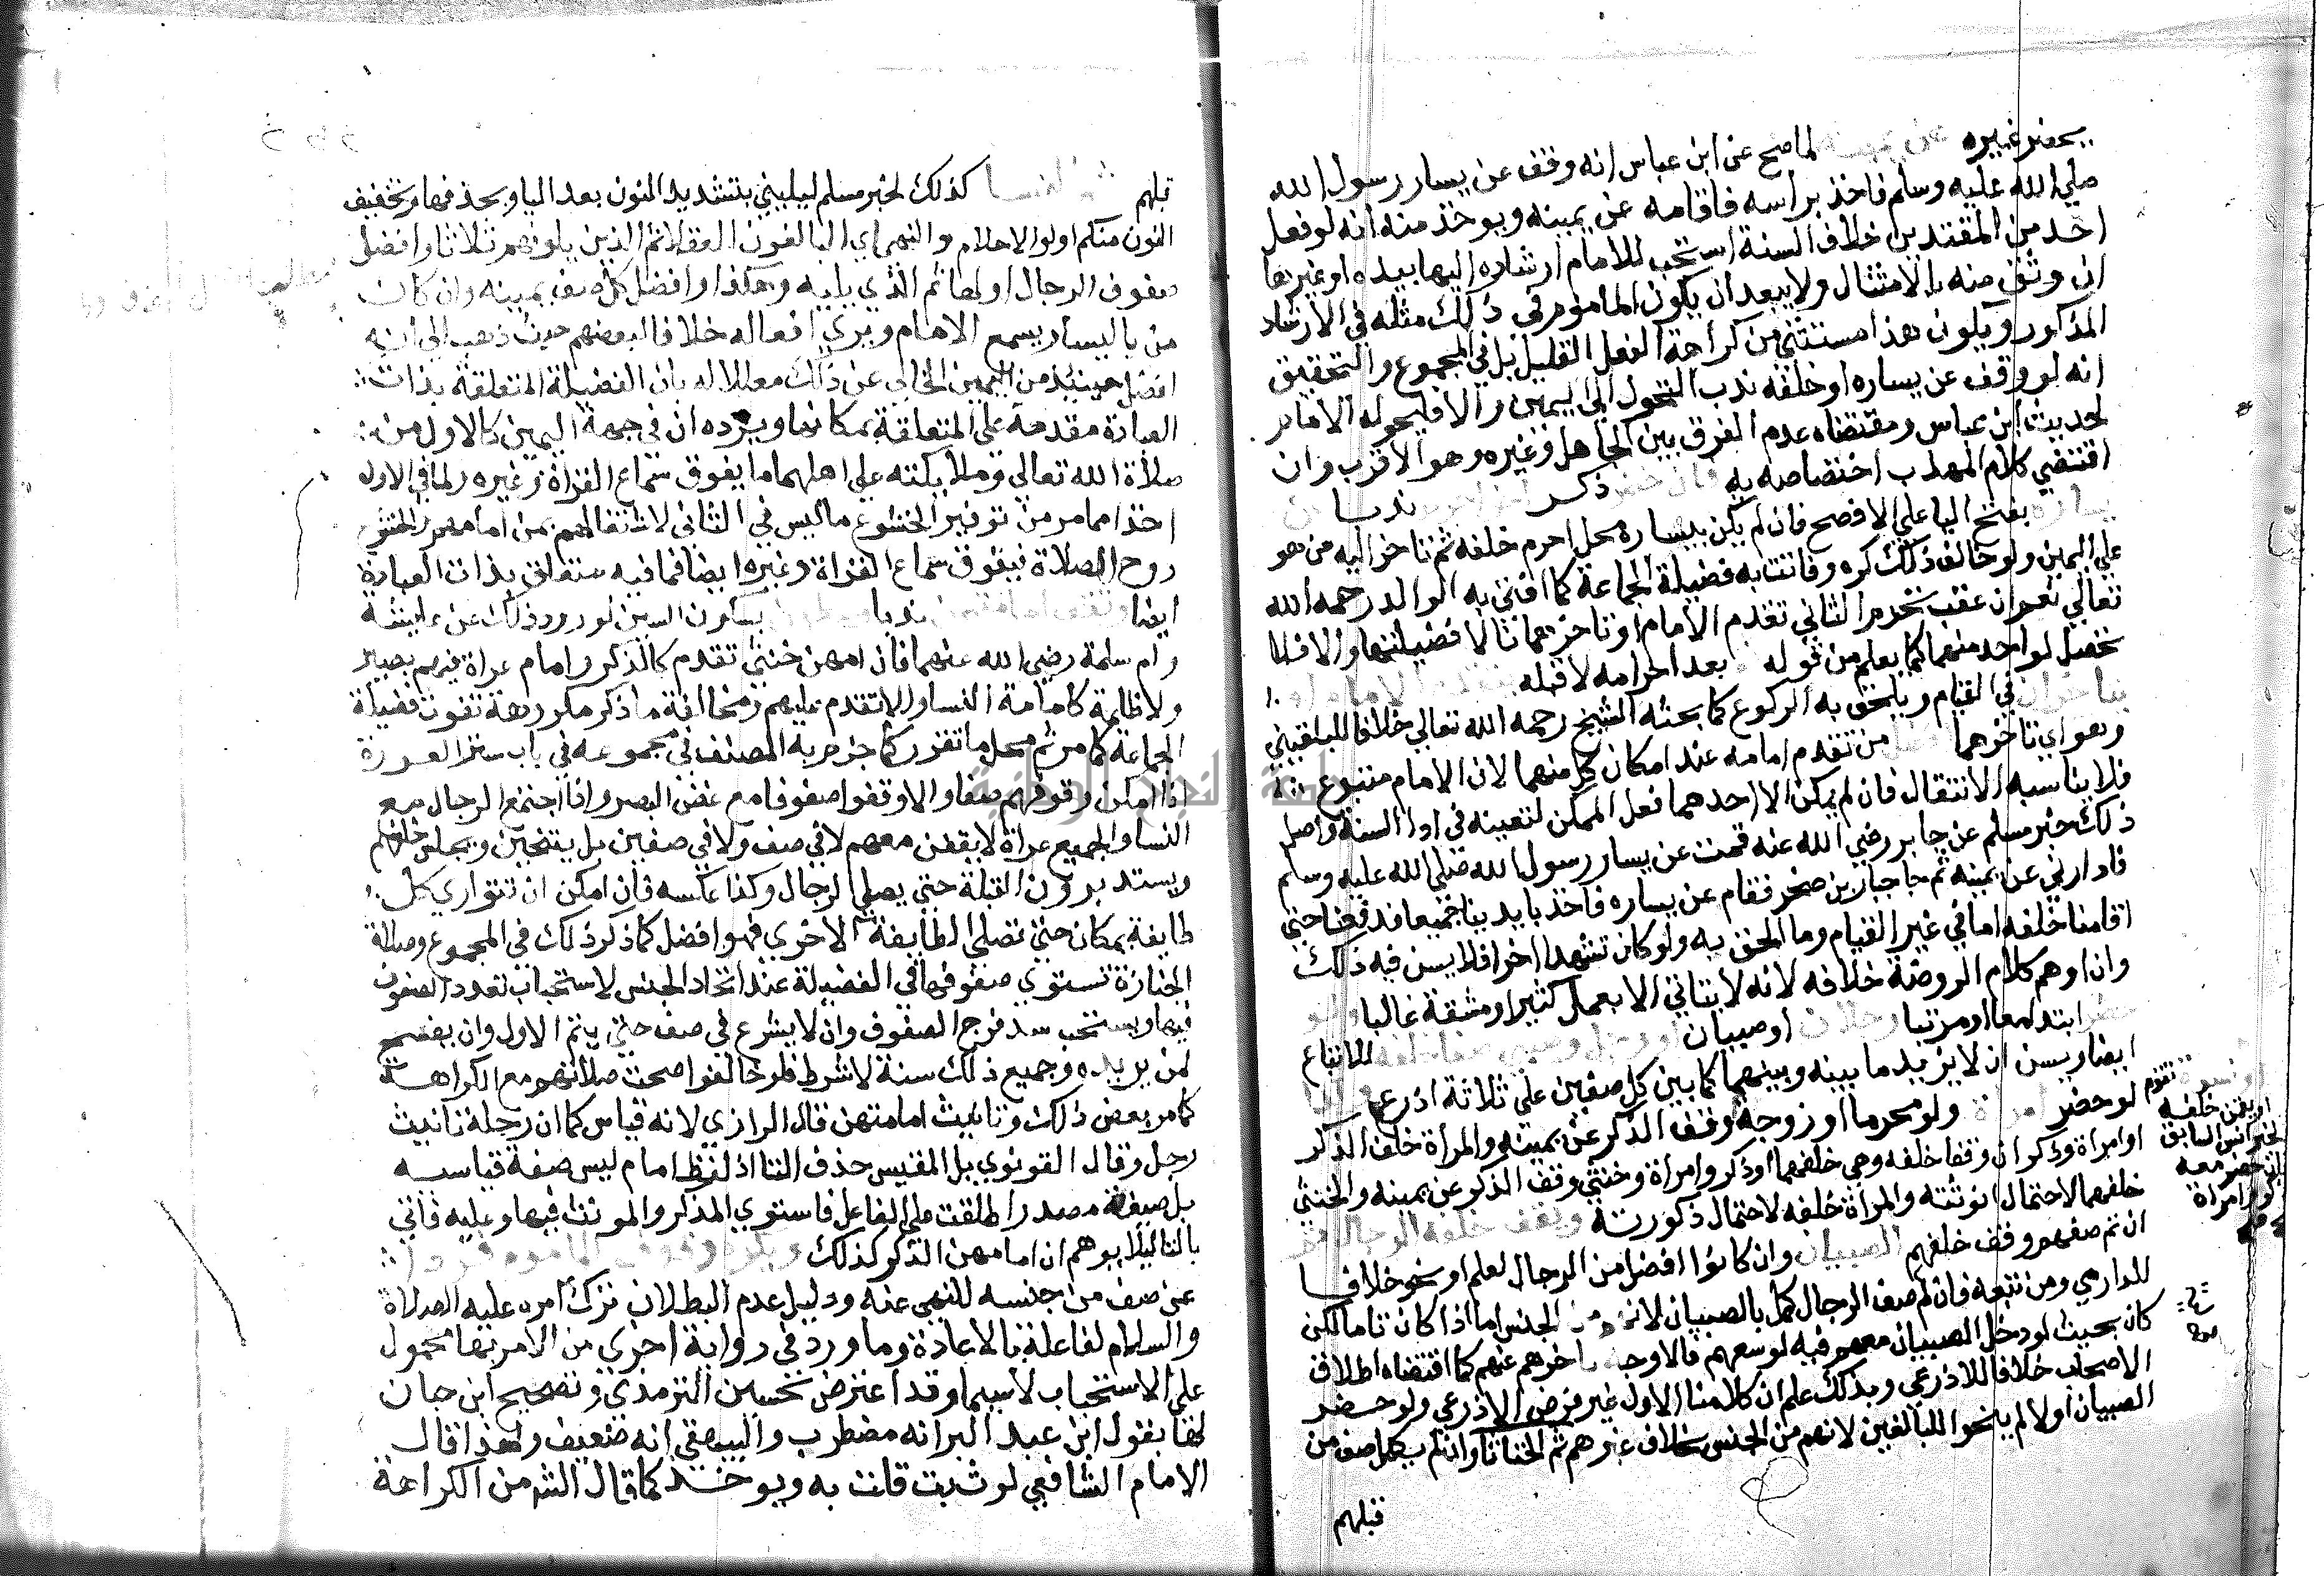 يحضر غيره عن يمينه لما صح عن ابن عباس انه وقف عن يسار رسول الله
صلي الله عليه وسلم فاخذ براسه فاقامه عن يمينه ويوخذ منه انه لو فعل
احد من المقتدين خلاف السنة استحب للامام ارشاده اليها بيده او غيرها
ان وثق منه بالامتثال ولا يبعد ان يكون الماموم في ذلك مثله في الارشاد
المذكور ويكون هذا مستثني من كراهة الفعل القليل بل في المجموع والتحقيق
انه لو وقف عن يساره او خلفه ندب التحول الي اليمين والا فليحوله الامام
لحديث ابن عباس ومقتضاه عدم الفرق بين الجاهل وغيره وهو الاقرب وان
اقتضي كلام المهذب اختصاصه به فان حضر ذكر ندبا
بفتح اليا علي الافصح فان لم يكن بيساره محل احرم خلفه ثم تاخر اليه من هو
علي اليمين ولو خالف ذلك كره وفاتت به فضيلة الجماعة كما افتي به الوالد رحمه الله
تعالي نعم ان عقب تحرم الثاني تقدم الامام او تاخرهما نالا فضيلتهما والا فلا
تحصل لواحد منهما كما يعلم من قوله بعد احرامه لا قبله
يتاخران في القيام ويلحق به الركوع كما بحثه الشيخ رحمه الله تعالي خلافا للبلقيني
وهو اي تاخرهما من تقدم امامه عند امكان كل منهما لان الامام متبوع
فلا يناسبه الانتقال فان لم يمكن الا احدهما فعل الممكن لتعينه في ادا السنة واصل
ذلك خبر مسلم عن جابر رضي الله عنه قمت عن يسار رسول الله صلي الله عليه وسلم
فادارني عن يمينه ثم جا جبار بن صخر فقام عن يساره فاخذ بايدينا جميعا فدفعنا حتي
اقامنا خلفه اما في غير القيام وما الحق به ولو كان تشهدا اخرا فلا يسن فيه ذلك
وان اوهم كلام الروضة خلافه لانه لا يتاتي الا بعمل كثير او مشقة غالبا ولو
حضر ابتدا معا او مرتبا رجلان او صبيان او رجل وصبي صفا خلفه للاتباع
ايضا ويسن ان لا يزيد ما بينه وبينهما كما بين كل صفين علي ثلاثة اذرع
لو حضر امراة ولو محرما او زوجة وقف الذكر عن يمينه والمراة خلف الذكر
او امراة وذكران وقفا خلفه وهي خلفهما او ذكر وامراة وخنثي وقف الذكر عن يمينه والخنثي
خلفهما لاحتمال انوثته والمراة خلفه لاحتمال ذكورته ويقف خلفه الرجال ثم
ان تم صفهم وقف خلفهم الصبيان وان كانوا افضل من الرجال لعلم او نحوه خلافا
للدارمي ومن تبعه فان لم صف الرجال كمل بالصبيان لانهم من الجنس اما اذا كان تاما لكن
كان بحيث لو دخل الصبيان معهم فيه لوسعهم فالاوجه تاخرهم عنهم كما اقتضاه اطلاق
الاصحاب خلافا للاذرعي وبذلك علم ان كلامنا الاول غير فرض الاذرعي ولو حضر
الصبيان اولا لم ينحوا للبالغين لانهم من الجنس بخلاف غيرهم ثم الخناثا وان لم يكمل صف من
قبلهم
او يقمن خلفه
لخبر انس السابق
فان حضر معه
ذكر وامراة
قبلهم ثم النسا كذلك لخبر مسلم ليليني بتشديد النون بعد اليا وبحذفها وتخفيف
النون منكم اولوا الاحلام والنهي اي البالغون العقلا ثم الذين يلونهم ثلاثا وافضل
صفوف الرجال اولها ثم الذي يليه وهكذا وافضل كل صف يمينه وان كان
من باليسار يسمع الامام ويري افعاله خلافا لبعضهم حيث ذهب الي انه
افضل حينئذ من اليمين الخالي عن ذلك معللا له بان الفضيلة المتعلقة بذات
العبادة مقدمة علي المتعلقة بمكانها ويرده ان في جهة اليمين كالاول من
صلاة الله تعالي وملايكته علي اهلهما ما يفوق سماع القراة وغيره ولما في الاول
اخذا مما مر من توفير الخشوع ما ليس في الثاني لاشتغالهم بمن امامهم والخشوع
روح الصلاة فيفوق سماع القراة وغيره ايضا فما فيه متعلق بذات العبادة
ايضا وتقف امامتهن ندبا وسطهن بسكون السين لورود ذلك عن عايشة
وام سلمة رضي الله عنهما فان امهن خنثي تقدم كالذكر وامام عراة فيهم بصير
ولا ظلمة كامامة النسا والا تقدم عليهم ومخالفة ما ذكر مكروهة تفوت فضيلة
الجماعة كما مر ثم محل ما تقرر كما جزم به المصنف في مجموعه في باب ستر العورة
اذا امكن وقوفهم صفا والا وقفوا صفوفا مع غض البصر واذا اجتمع الرجال مع
النسا والجميع عراة لا يقفن معهم لا في صف ولا في صفين بل يتنحين ويجلسن خلفهم
ويستدبرون القبلة حتي يصلي الرجال وكذا عكسه فان امكن ان تتواري كل
طايفة بمكان حتي تصلي الطايفة الاخري فهو افضل كما ذكر ذلك في المجموع وصلاة
الجنازة تستوي صفوفها في الفضيلة عند اتحاد الجنس لاستحباب تعدد الصفوف
فيها ويستحب سد فرج الصفوف وان لا يشرع في صف حتي يتم الاول وان يفسح
لمن يريده وجميع ذلك سنة لا شرط فلو خالفوا صحت صلاتهم مع الكراهة
كما مر بعض ذلك وتانيث امامتهن قال الرازي لانه قياس كما ان رجلة تانيث
رجل وقال القونوي بل المقيس حذف التا اذ لفظ امام ليس صفة قياسية
بل صيغة مصدر اطلقت علي الفاعل فاستوي المذكر والمونث فيها وعليه فاتي
بالتا ليلا يوهم ان امامهن الذكر كذلك ويكره وقوف الماموم فردا
عن صف من جنسه للنهي عنه ودليل عدم البطلان ترك امره عليه الصلاة
والسلام لفاعله بالاعادة وما ورد في رواية اخري من الامر بها محمول
علي الاستحباب لا سيما وقد اعترض تحسين الترمذي وتصحيح ابن حبان
لها بقول ابن عبد البر انه مضطرب والبيهقي انه ضعيف ولهذا قال
الامام الشافعي لو ثبت قلت به ويوخذ كما قال الشر من الكراهة